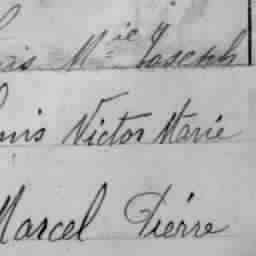 Mie Joseph
Victor Marie
Marcel Pierre